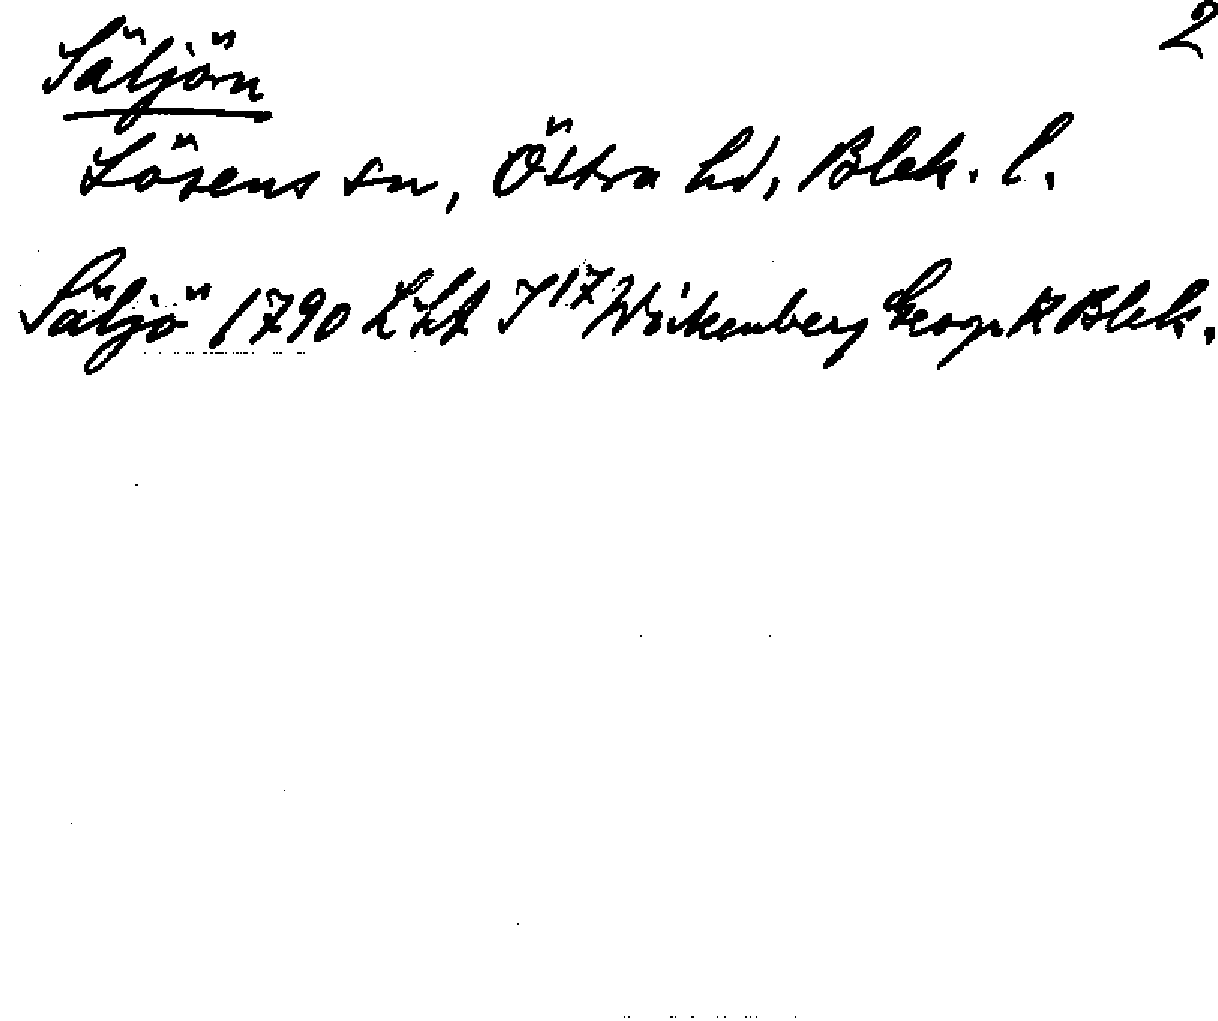 2
Säljön
Lösens sn, Östra hd, Blek. l.
Säljö 1790 LHA J 17 Wöikenberg Geogr K Blek.